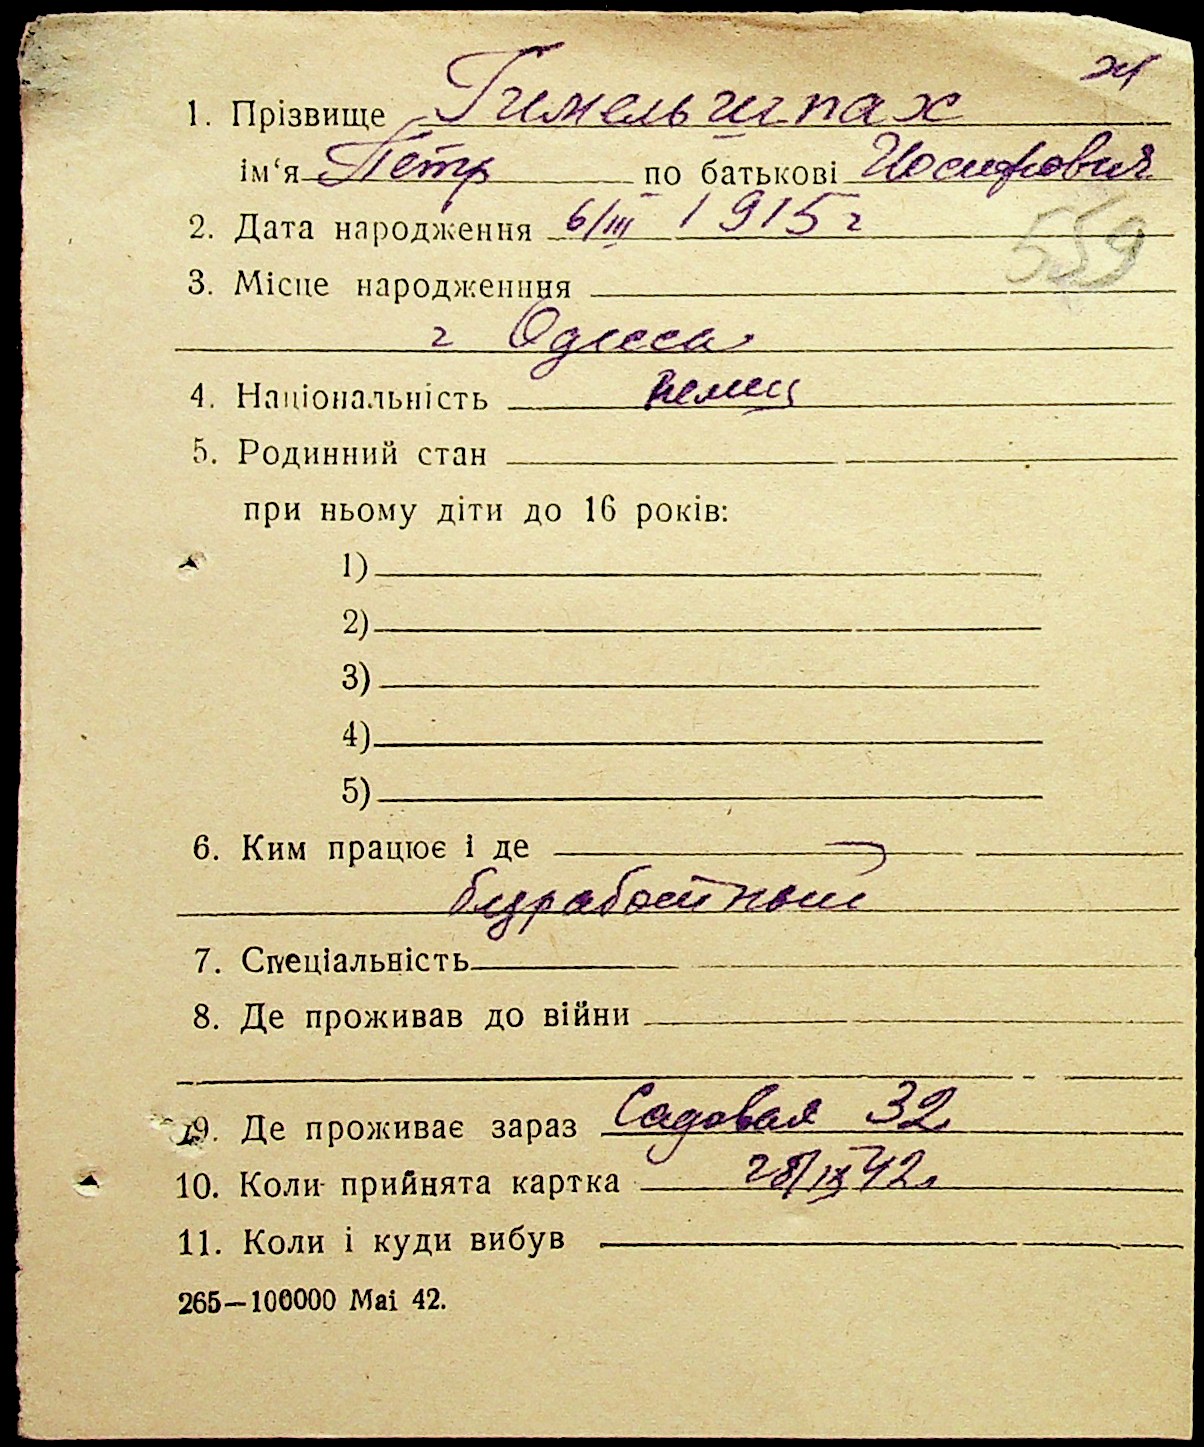 1. Прізвище Гимельшпах
ім‘я Петр по батькові Иосифович
2. Дата народження 6/III 1915 г
559
3. Місце народженння
г Одесса
4. Національність немец
5. Родинний стан
при ньому діти до 16 років:
1)
2)
3)
4)
5)
6. Ким працює і де
безработный
7. Спеціальність
8. Де проживав до війни
9. Де проживає зараз Садовая 32
10. Коли прийнята картка 28/IX 42г.
11. Коли і куди вибув
265—100000 Mai 42.